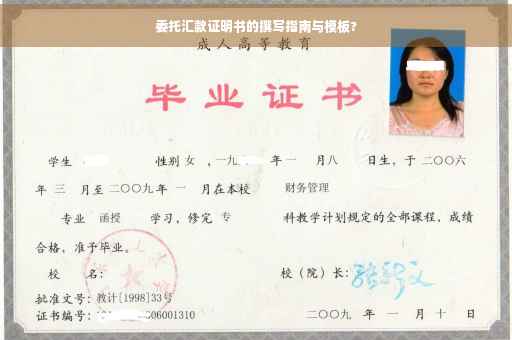 委托汇款证明书的撰写指南与模板?
成人高等教育
毕业证书
学生 性别 女 ,一九 年 一 月 八 日生,于 二〇〇六
年 三 月至 二〇〇九 年 一 月在本校 财务管理
专业 函授 学习,修完 专 科教学计划规定的全部课程,成绩
合格,准予毕业。
校 名: 校(院)长:
批准文号:教计[1998]33号
证书编号: 06001310 二〇〇九 年 一 月 十 日